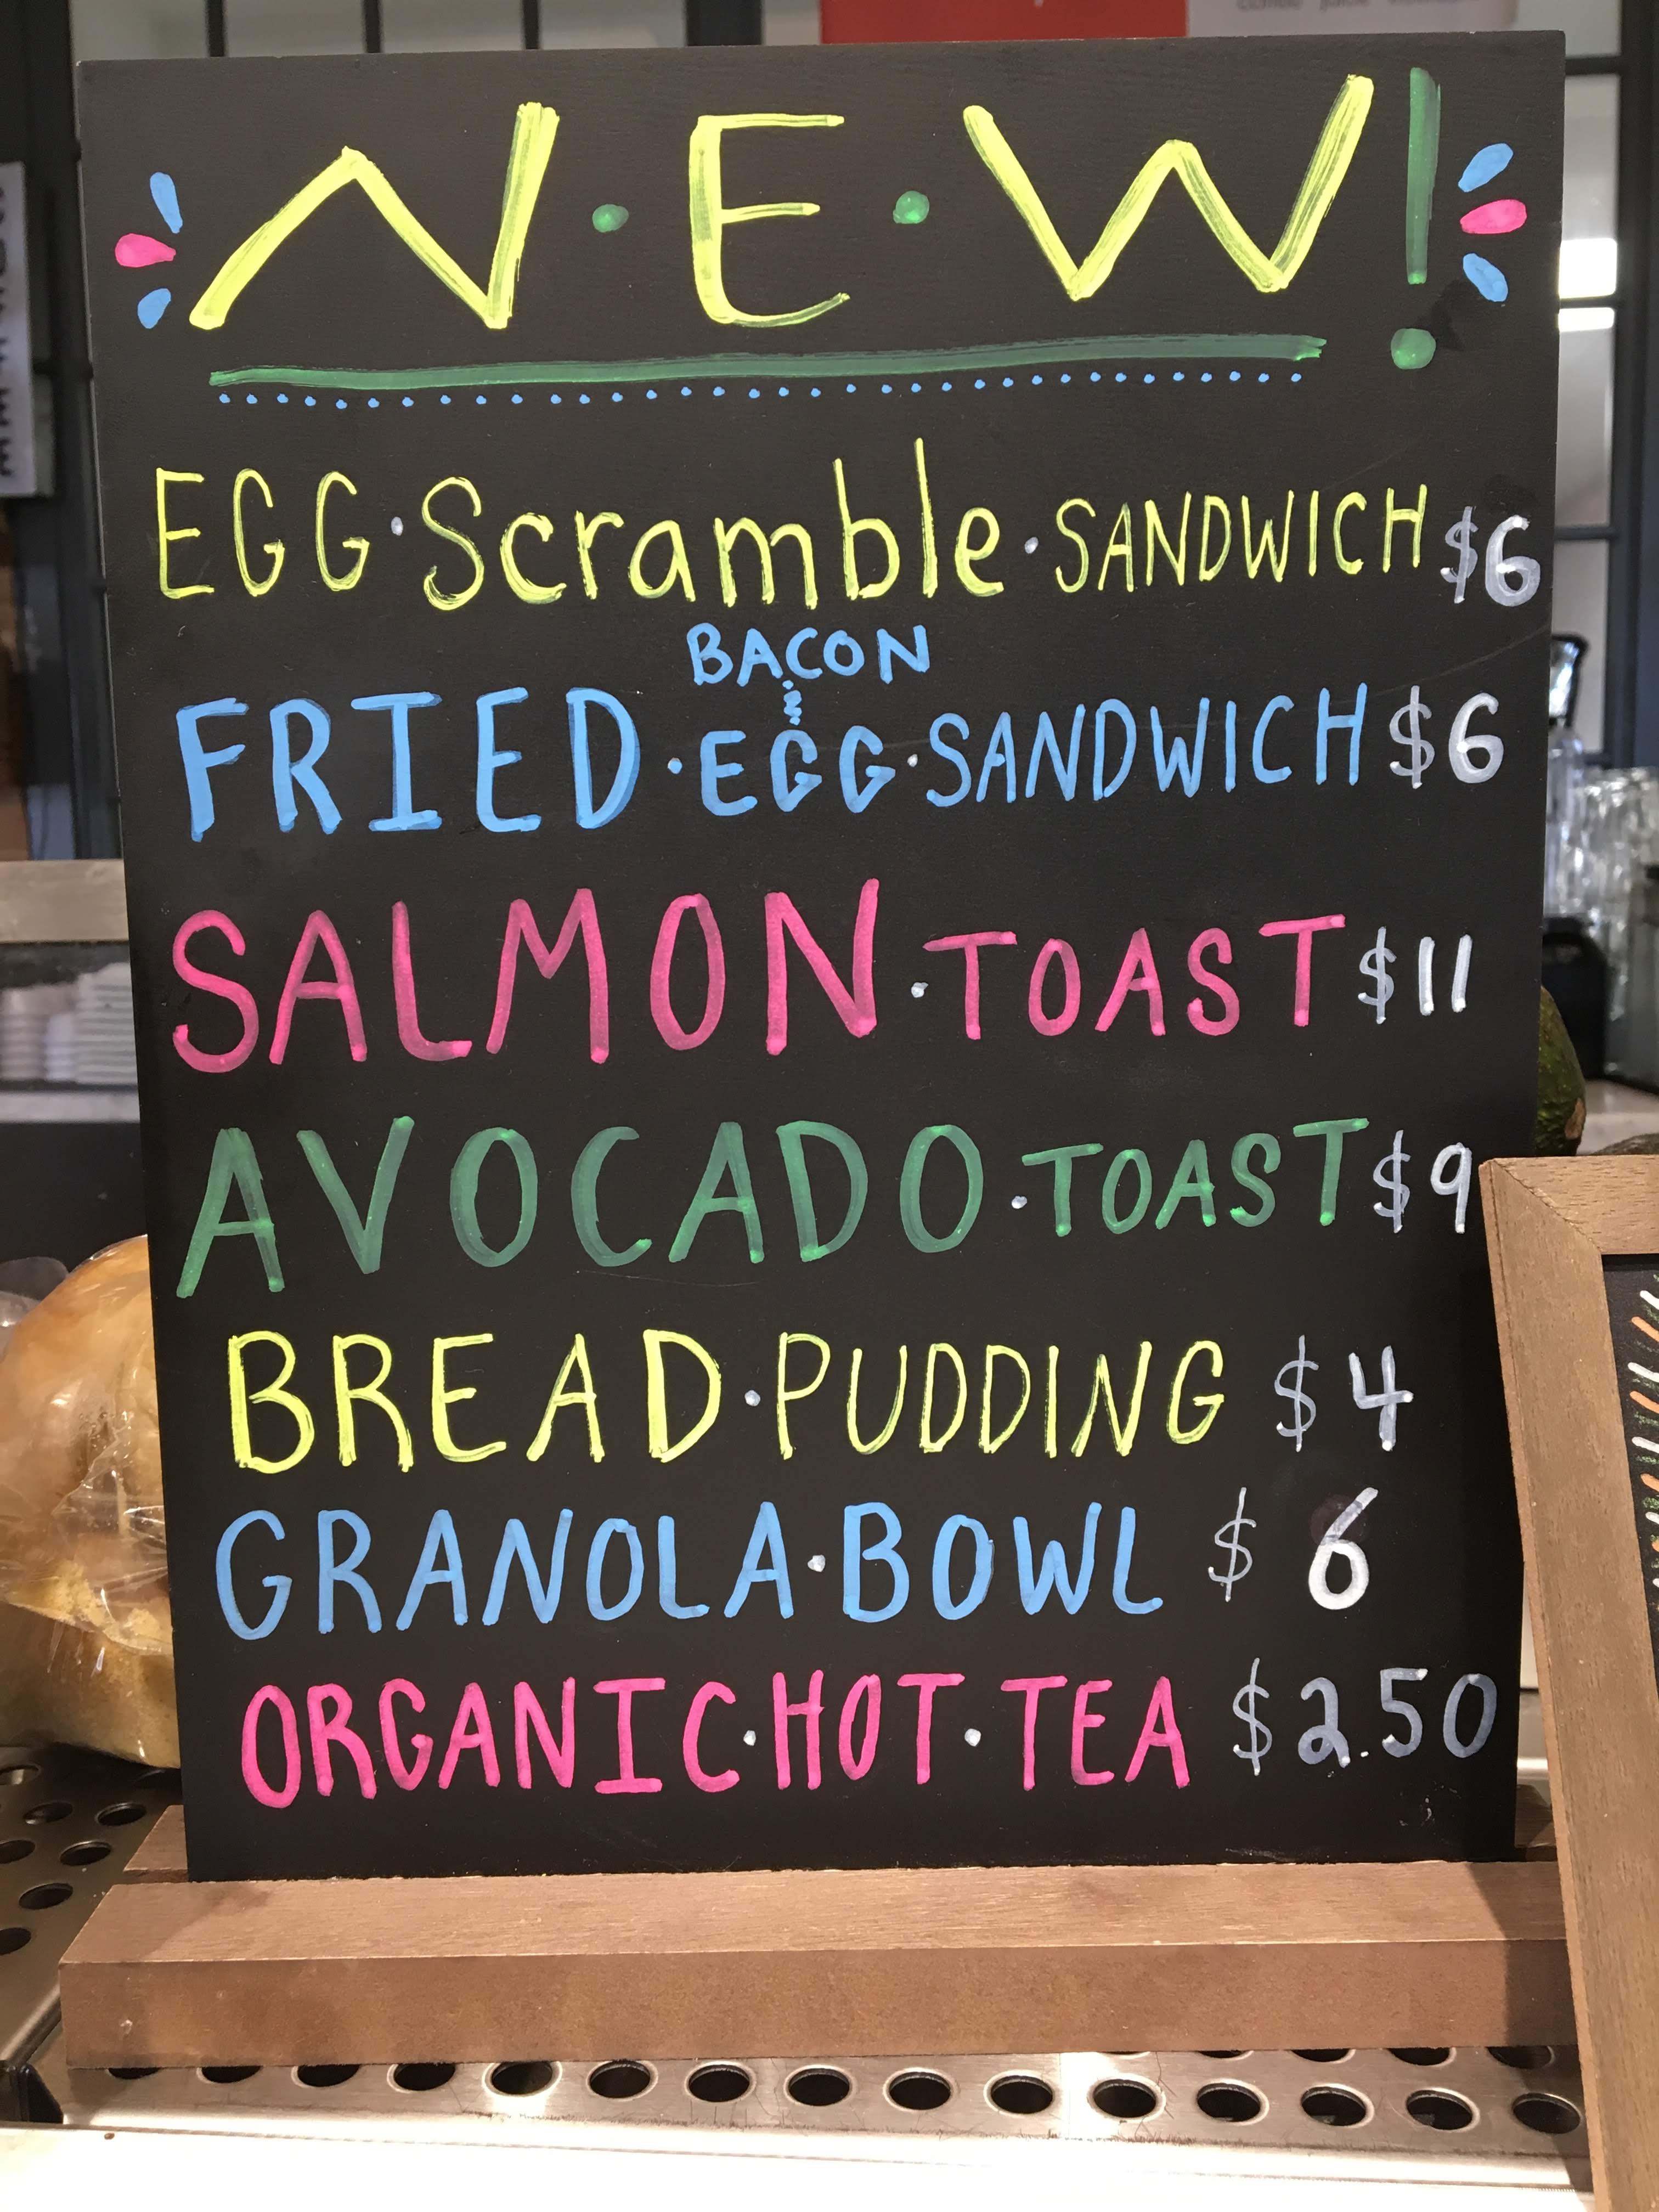 N·E·W!
EGG·Scramble·SANDWICH $6
BACON
FRIED·EGG·SANDWICH $6
SALMON·TOAST $11
AVOCADO·TOAST $9
BREAD·PUDDING $4
GRANOLA·BOWL $6
ORGANIC·HOT·TEA $2.50